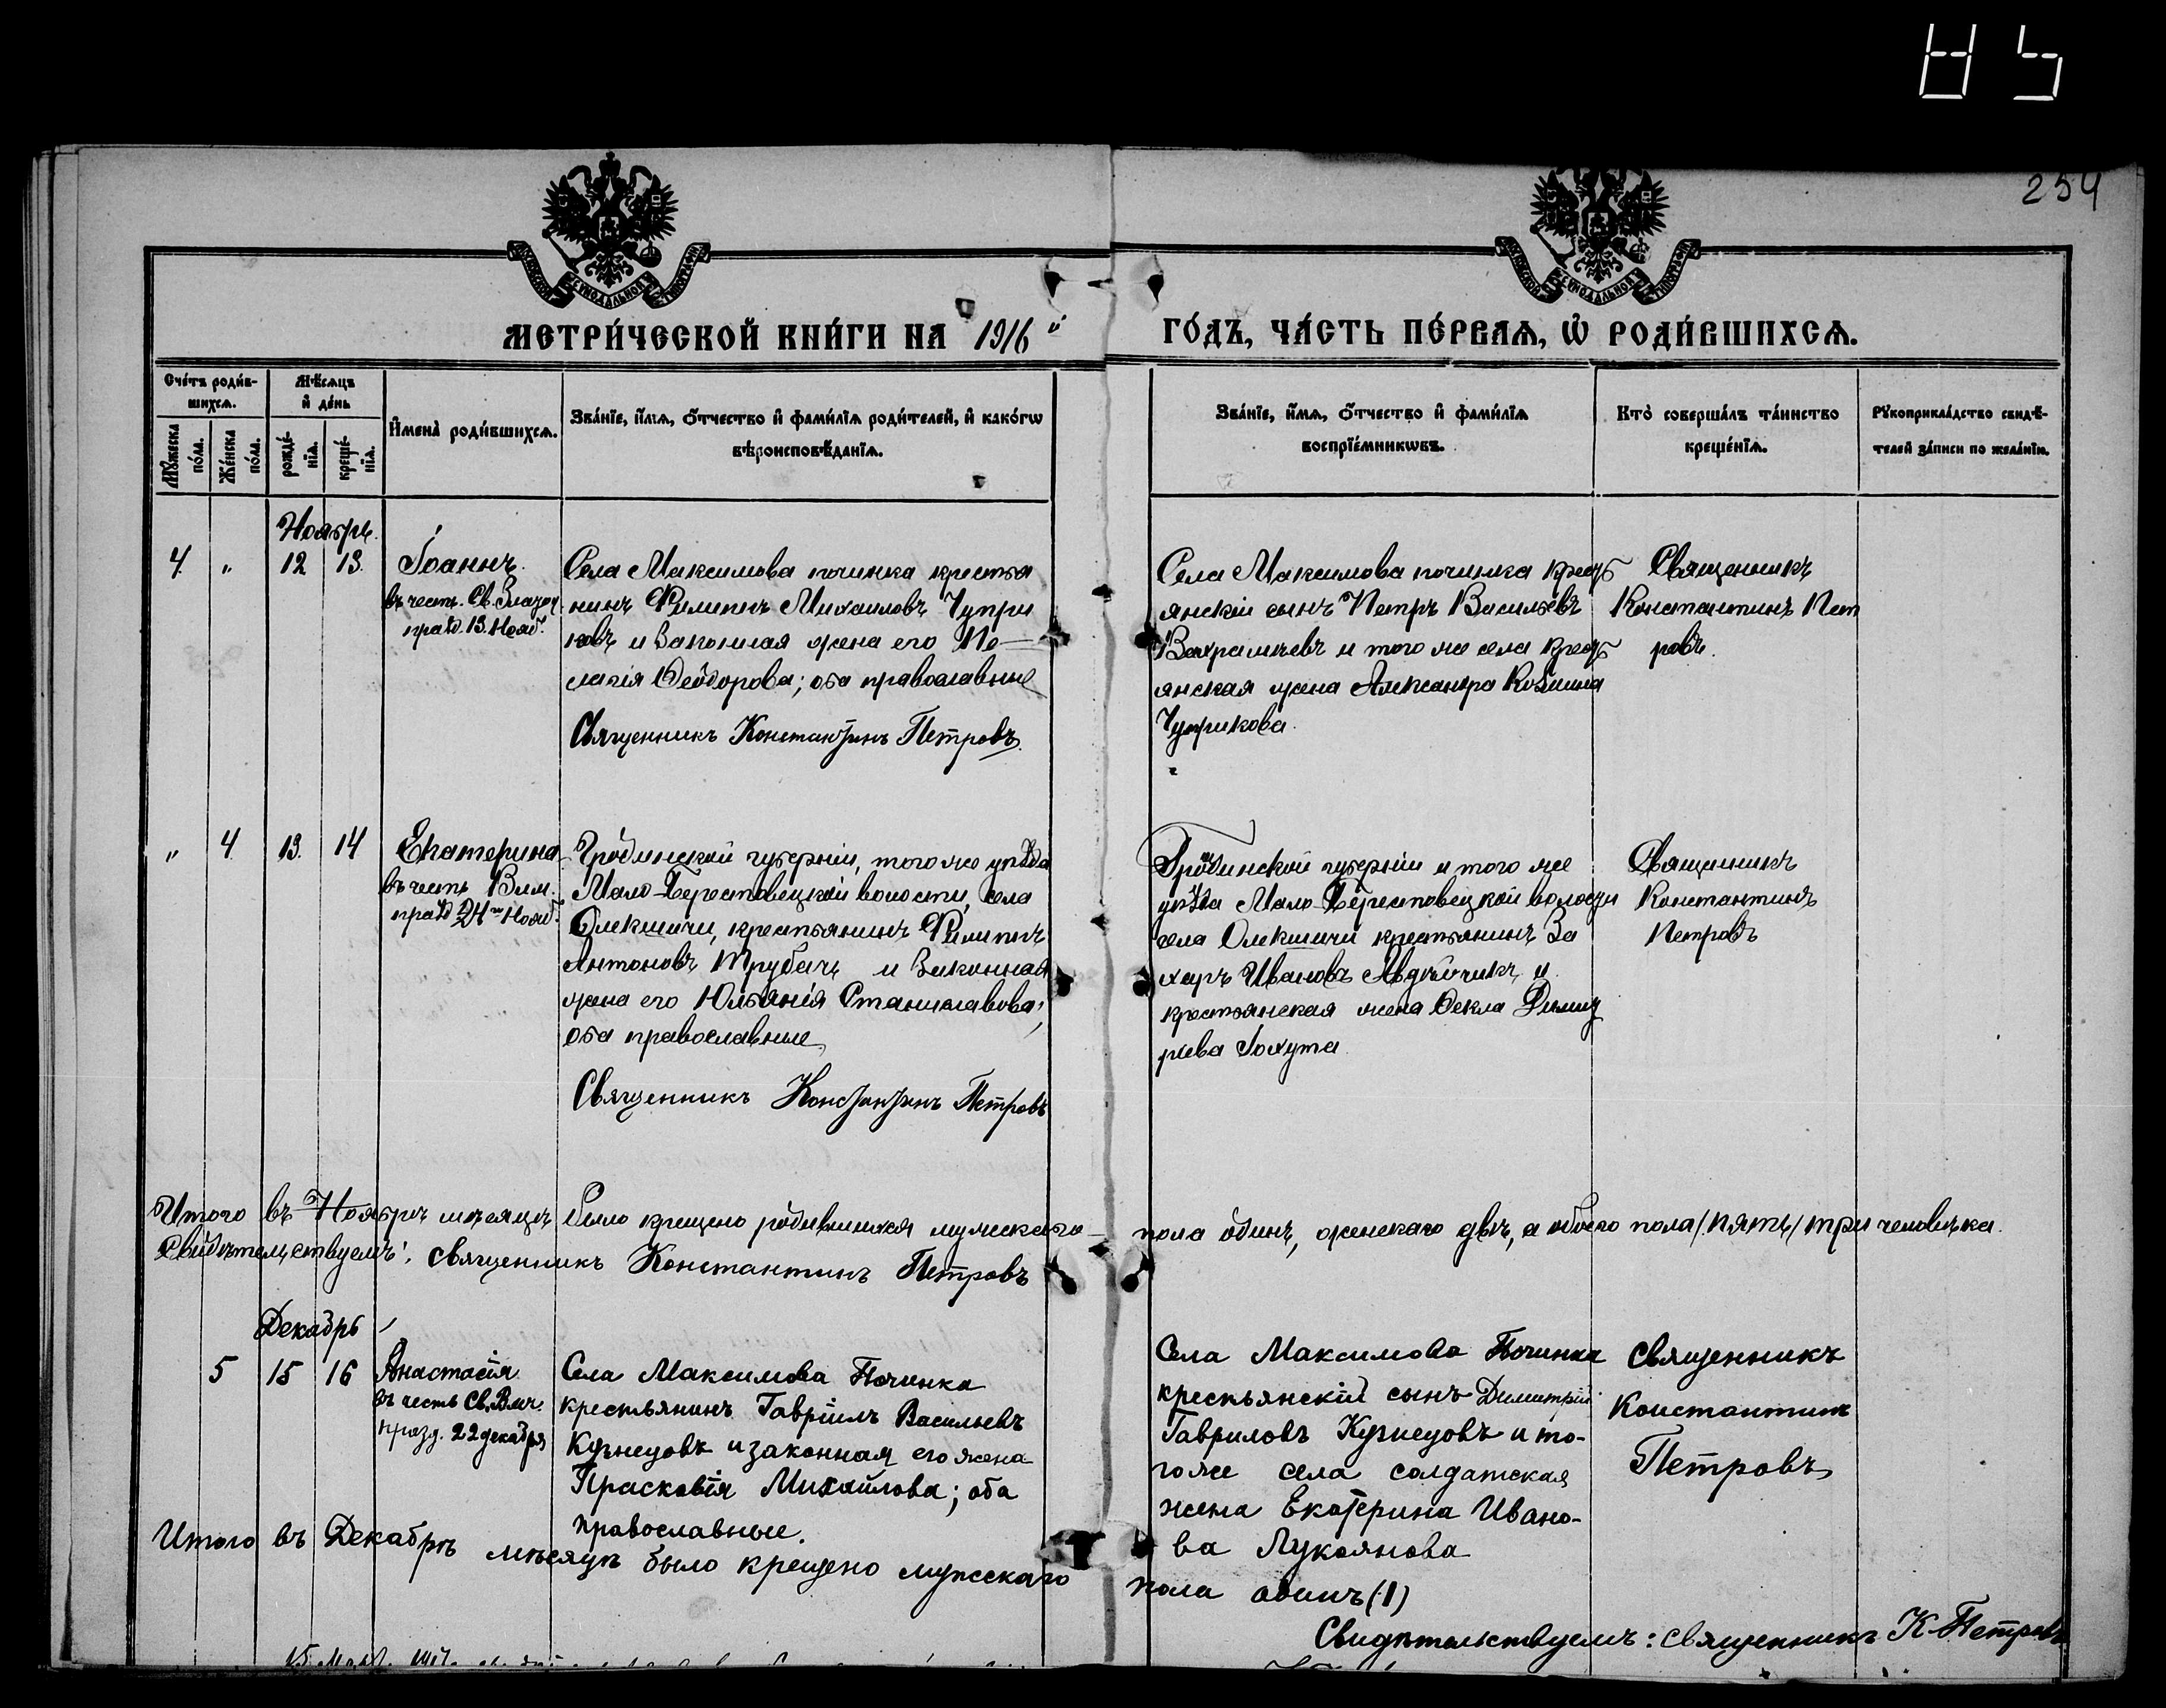 254
МЕТРИ́ЧЕСКОЙ КНИ́ГИ НА 1916 ГО́ДЪ, ЧА́СТЬ ПЕ́РВАѦ, Ѡ҆ РОДИ́ВШИХСѦ.
Сче́тъ роди́в-
шихсѧ.
Мꙋ́жеска
по́ла.
Же́нска
по́ла.
Мѣ́сѧцъ
и҆ де́нь
рожде́-
нїѧ.
креще́-
нїѧ.
И҆мена̀ роди́вшихсѧ.
Зва́нїе, и҆́мѧ, ѻ҆́тчество и҆ фами́лїѧ роди́телей, и҆ како́гѡ
вѣроисповѣ́данїѧ.
Зва́нїе, и҆́мѧ, ѻ҆́тчество и҆ фами́лїѧ
воспрїе́мникѡвъ.
Кто̀ соверша́лъ та́инство
креще́нїѧ.
Рꙋкоприкла́дство свидѣ́-
телей за́писи по жела́нїю.
Ноябрь.
4 " 12 13.
Іоаннъ.
въ честь. Св. Злат.
празд. 13. Нояб.
Села Максимова починка крестья
нинъ Филиппъ Михаиловъ Чупри
ковъ и законная жена его Пе-
лагія Ѳеодорова; оба православные
Священникъ Константинъ Петровъ
Села Максимова починка крест
янскій сынъ Петръ Васильевъ
Вахрамѣевъ и того же села крест
янская жена Александра Козмина
Чуприкова.
Священникъ
Константинъ Пет
ровъ.
" 4 13. 14
Екатерина
въ честь Влм.
празд 24го Нояб.
Гродненской губерніи, того же уѣзда
Мало-Берестовецкой волости, села
Олекшичи, крестьянинъ Филиппъ
Антоновъ Трубачъ и законная
жена его Юліанія Станиславова;
оба православные
Священникъ Константинъ Петровъ
Гродненской губерніи и того же
уѣзда Мало-Берестовецкой волости
села Олекшичи крестьянинъ За
харъ Ивановъ Авдѣйчикъ и
крестьянская жена Ѳекла Димит
ріева Гохута
Священникъ
Константинъ
Петровъ
Итого въ Ноябрѣ мѣсяцѣ было крещено родившихся мужескаго пола одинъ, женскаго двѣ, а обоего пола /пять/ три человѣка.
Свидѣтельствуемъ: Священникъ Константинъ Петровъ
Декабрь
5 15 16
Анастасія
въ честь Св. Влмч.
празд. 22 декабря
Села Максимова Починка
крестьянинъ Гавріилъ Васильевъ
Кузнецовъ и законная его жена
Прасковія Михайлова; оба
православные.
Села Максимова Починка
крестьянскій сынъ Димитрій
Гавриловъ Кузнецовъ и то-
гоже села солдатская
жена Екатерина Ивано-
ва Лукоянова
Священникъ
Константинъ
Петровъ
Итого въ Декабрѣ мѣсяцѣ было крещено мужескаго пола одинъ (1)
Свидѣтельствуемъ: священникъ К Петровъ